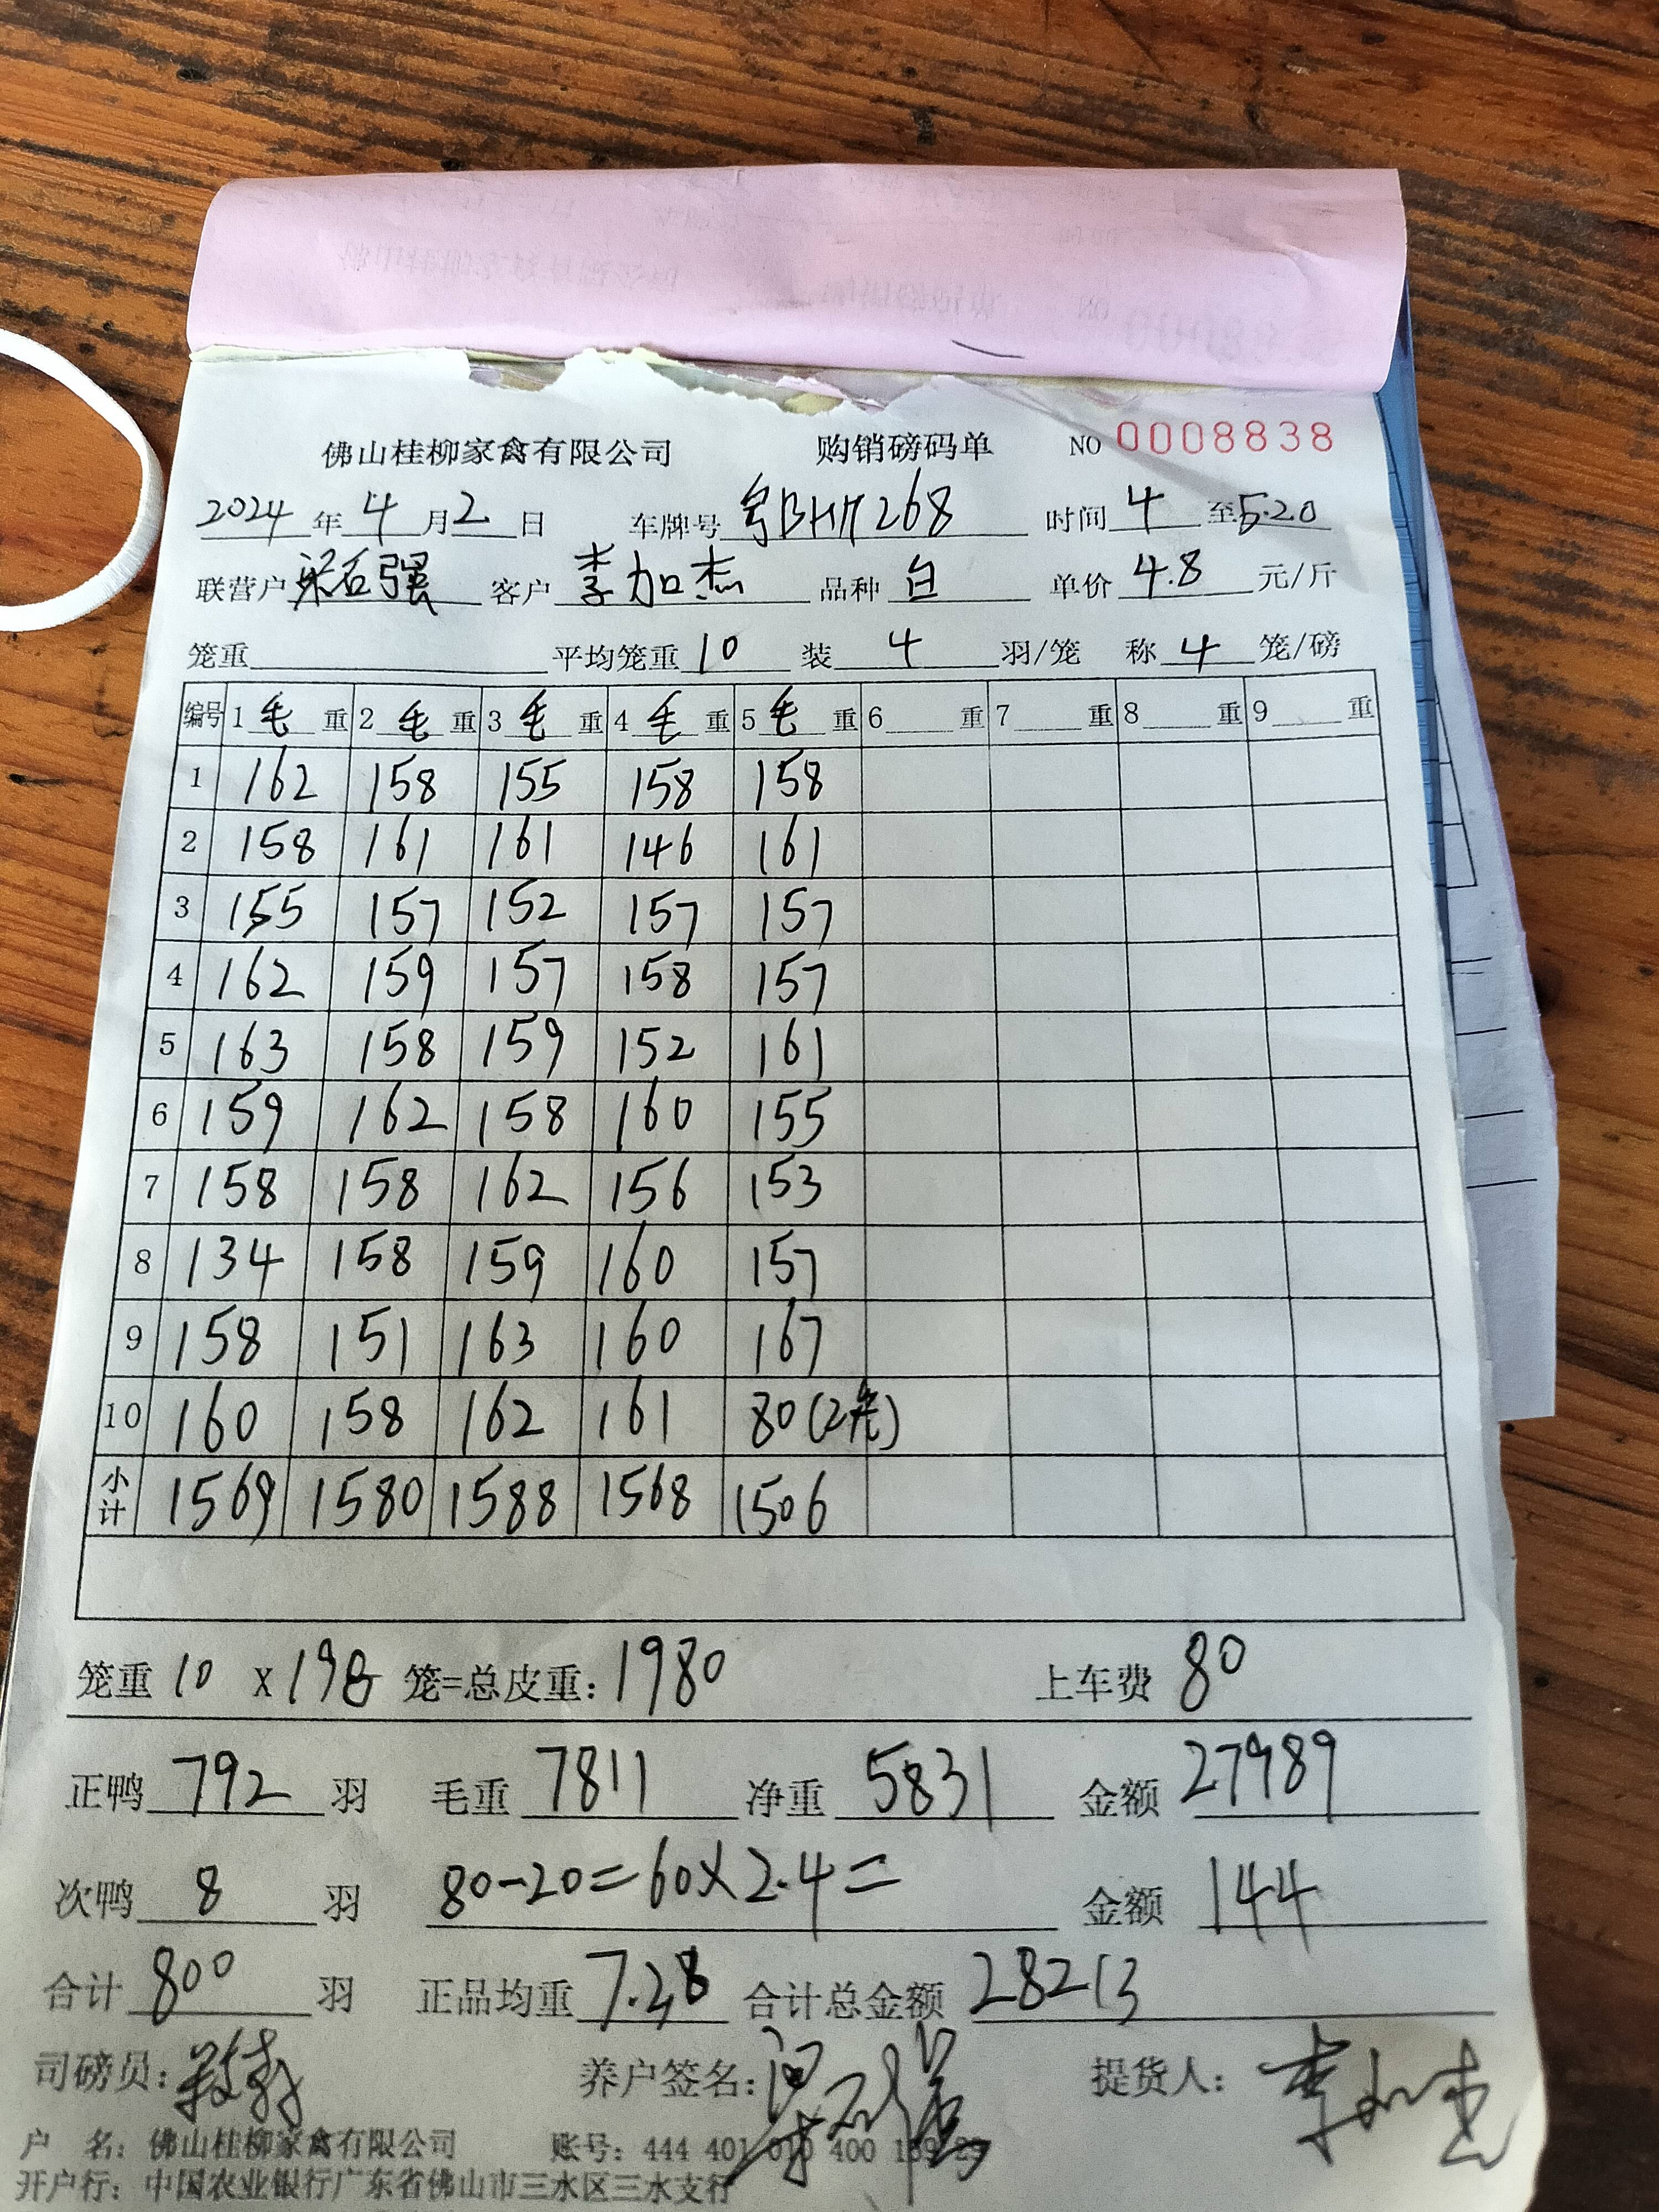 佛山桂柳家禽有限公司 购销磅码单 NO 0008838
2024 年 4 月 2 日 车牌号 粤BH 268 时间 4 至 5.20
联营户 强 客户 李加杰 品种 白 单价 4.8 元/斤
笼重 平均笼重 10 装 4 羽/笼 称 4 笼/磅
编号 1 毛 重 2 毛 重 3 毛 重 4 毛 重 5 毛 重 6 重 7 重 8 重 9 重
1 162 158 155 158 158
2 158 161 161 146 161
3 155 157 152 157 157
4 162 159 157 158 157
5 163 158 159 152 161
6 159 162 158 160 155
7 158 158 162 156 153
8 134 158 159 160 157
9 158 151 163 160 167
10 160 158 162 161 80(2笼)
小计 1569 1580 1588 1568 1506
笼重 10 X 198 笼=总皮重: 1980 上车费 80
正鸭 792 羽 毛重 7811 净重 5831 金额 27989
次鸭 8 羽 80-20=60×2.4= 金额 144
合计 800 羽 正品均重 7.38 合计总金额 28213
司磅员: 养户签名: 提货人: 李加杰
户 名: 佛山桂柳家禽有限公司 账号: 444 401 010 400
开户行: 中国农业银行广东省佛山市三水区三水支行